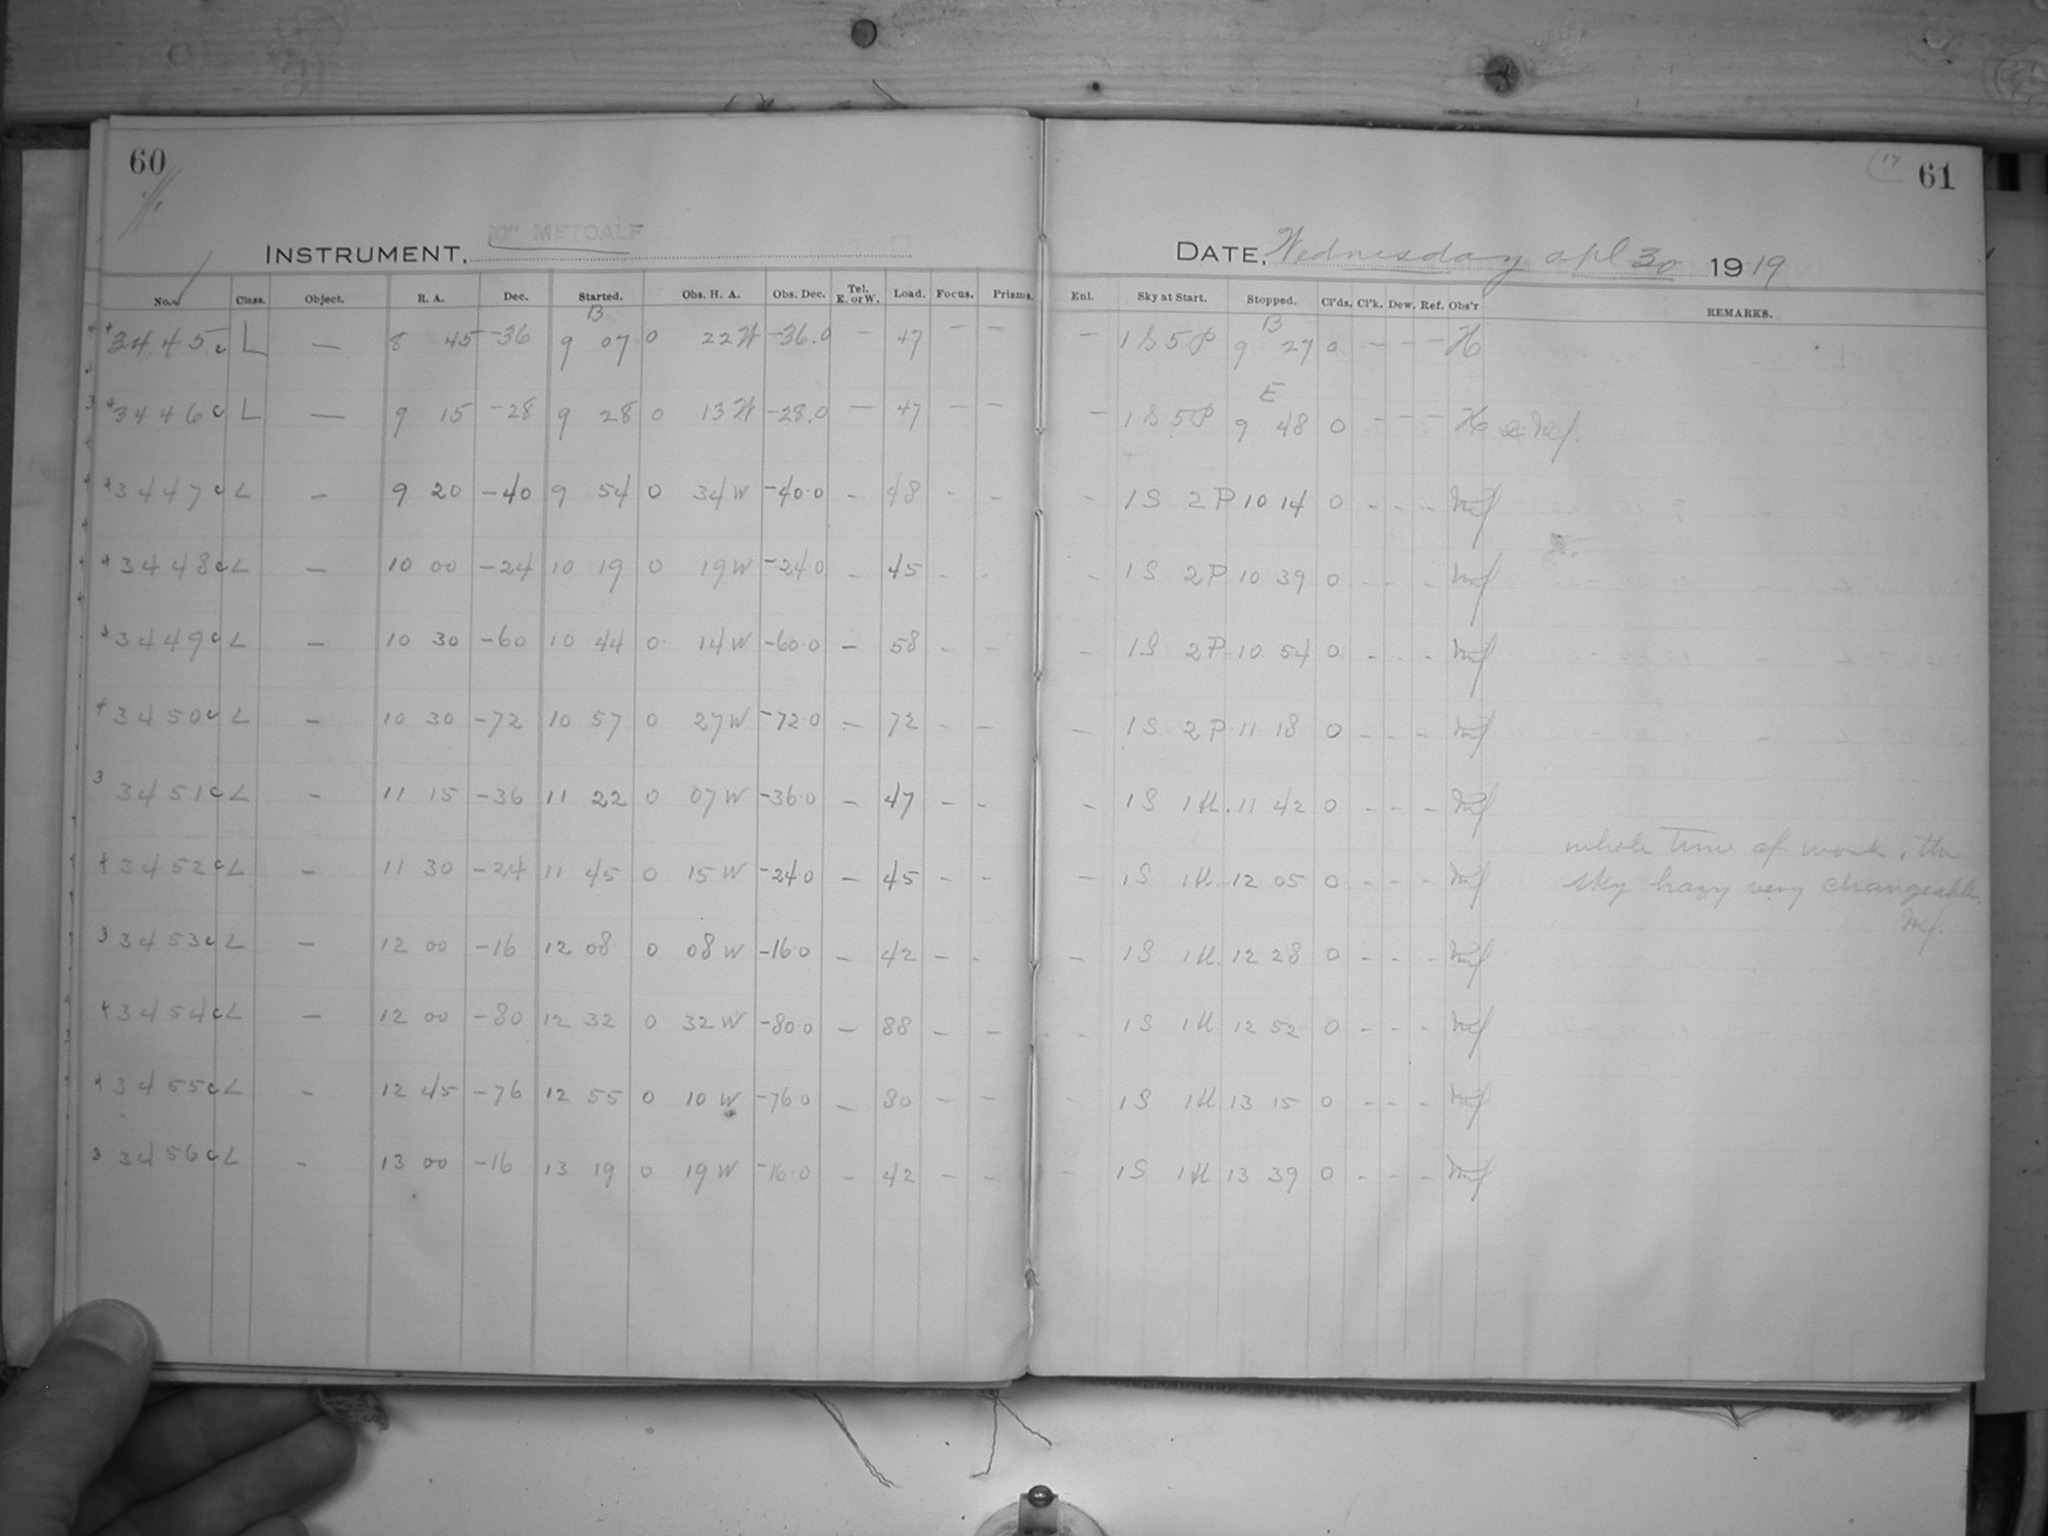 60
61
INSTRUMENT, 10" METCALF
DATE, Wednesday apl 30 1919
No. Class. Object. R. A. Dec. Started. Obs. H. A. Obs. Dec. Tel. E. or W. Load. Focus. Prisms. Enl. Sky at Start. Stopped. Cl'ds. Cl'k. Dew. Ref. Obs'r REMARKS.
B B
3445c L — 8 45 -36 9 07 0 22W -36.0 — 47 — — — 1S 5P 9 27 0 - - - H
E
3446c L — 9 15 -28 9 28 0 13W -28.0 — 47 — — — 1S 5P 9 48 0 - - - H & Mf.
3447c L — 9 20 -40 9 54 0 34W -40.0 - 48 - - - 1S 2P 10 14 0 - - - Mf
3448c L — 10 00 -24 10 19 0 19W -24 0 - 45 - - - 1S 2P 10 39 0 - - - Mf
3449c L — 10 30 -60 10 44 0 14W -60.0 - 58 - - - 1S 2P 10 54 0 - - - Mf
3450c L — 10 30 -72 10 57 0 27W -72.0 - 72 - - - 1S 2P 11 18 0 - - - Mf
3451c L - 11 15 -36 11 22 0 07W -36.0 - 47 - - - 1S 1H. 11 42 0 - - - Mf
3452c L - 11 30 -24 11 45 0 15W -24.0 - 45 - - - 1S 1H. 12 05 0 - - - Mf
whole time of work, the
sky hazy very changeable.
Mf.
3453c L - 12 00 -16 12 08 0 08W -16.0 - 42 - - - 1S 1H. 12 28 0 - - - Mf
3454c L - 12 00 -80 12 32 0 32W -80.0 - 88 - - - 1S 1H 12 52 0 - - - Mf
3455c L - 12 45 -76 12 55 0 10W -76 0 - 80 - - - 1S 1H. 13 15 0 - - - Mf
3456c L - 13 00 -16 13 19 0 19W -16.0 - 42 - - - 1S 1H 13 39 0 - - - Mf